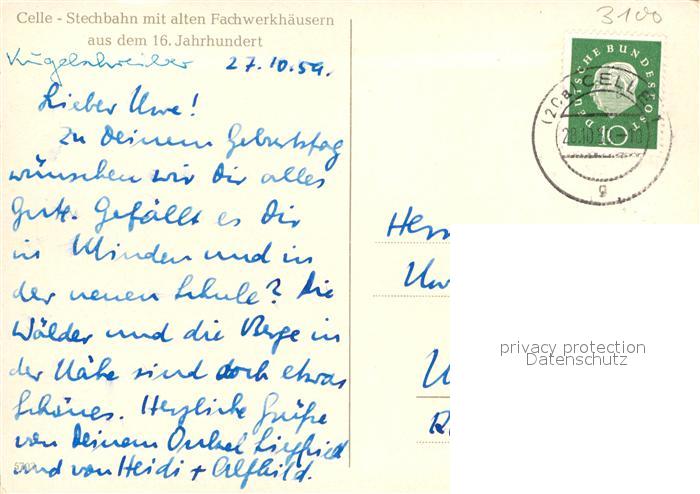 Celle - Stechbahn mit alten Fachwerkhäusern
aus dem 16. Jahrhundert
Kugelschreiber 27.10.59.
Lieber Uwe!
Zu Deinem Geburtstag
wünschen wir Dir alles
Gute. Gefällt es Dir
in Minden und in
der neuen Schule? Die
Wälder und die Berge in
der Nähe sind doch etwas
Schönes. Herzliche Grüße
von Deinem Onkel Siegfried
und von Heidi + Alfhild.
3100
DEUTSCHE BUNDESPOST
10
CELLE
g
Herr
privacy protection
Datenschutz